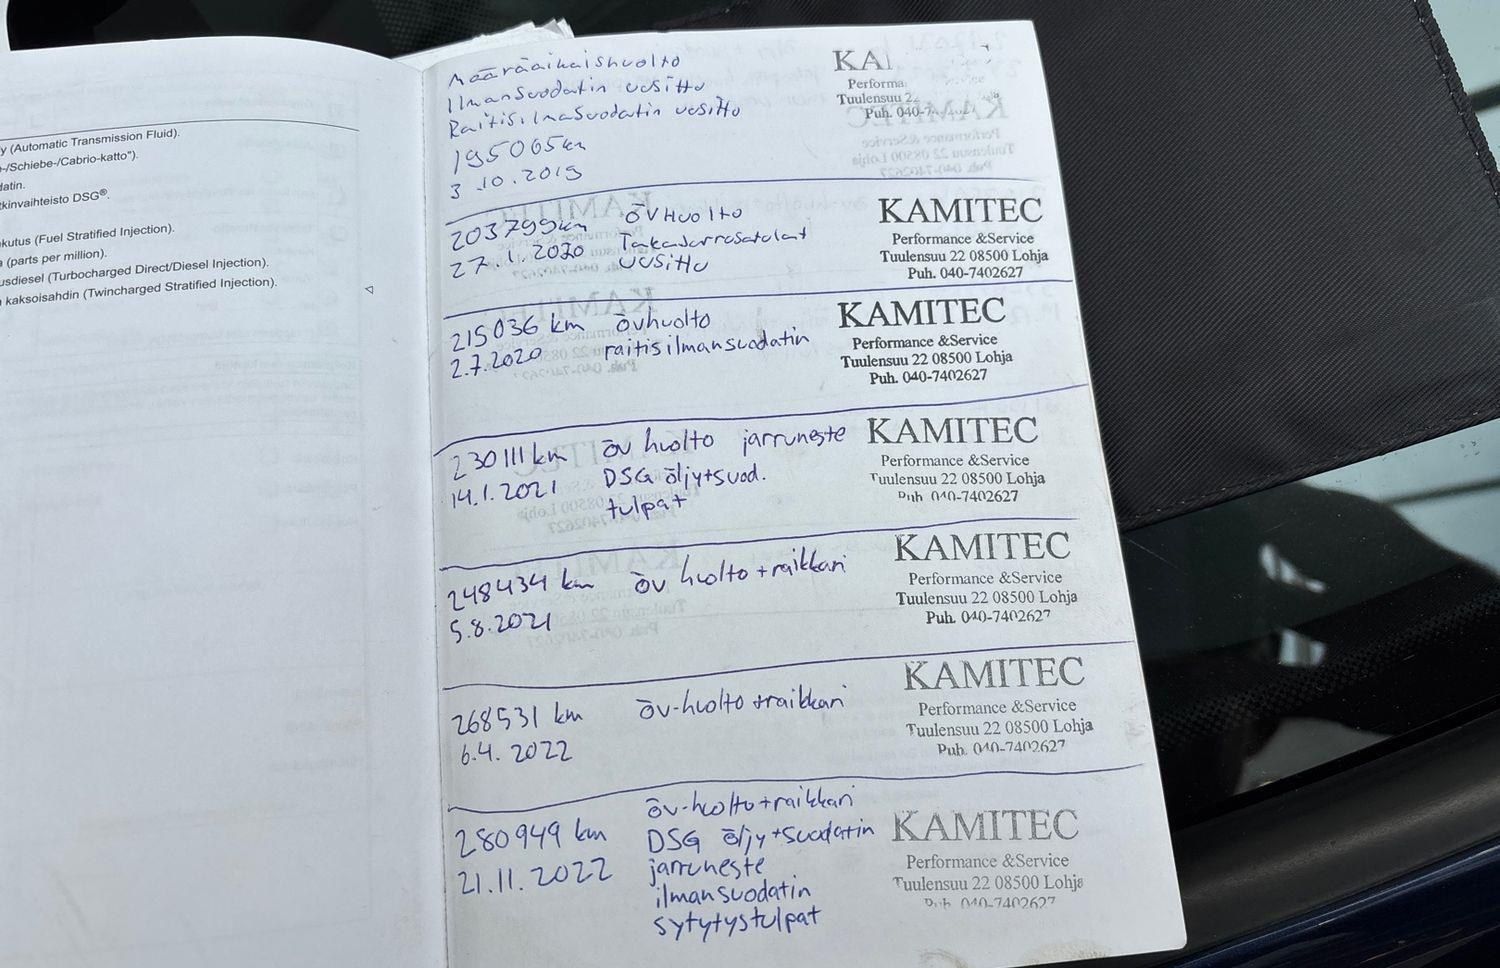 y (Automatic Transmission Fluid).
-/Schiebe-/Cabrio-katto").
datin.
tkinvaihteisto DSG®.
kutus (Fuel Stratified Injection).
a (parts per million).
usdiesel (Turbocharged Direct/Diesel Injection).
kaksoisahdin (Twincharged Stratified Injection).
Määräaikaishuolto
Ilmansuodatin uusittu
Raitisilmasuodatin uusittu
195065km
3.10.2019
KA
Performa
Tuulensuu 2
Puh. 040-7
203799km ÖVHuolto
27.1.2020 Takajarrusatulat
uusittu
KAMITEC
Performance &Service
Tuulensuu 22 08500 Lohja
Puh. 040-7402627
215036 km övhuolto
2.7.2020 raitisilmansuodatin
KAMITEC
Performance &Service
Tuulensuu 22 08500 Lohja
Puh. 040-7402627
230111 km öv huolto jarruneste
14.1.2021 DSG öljy+suod.
tulpat
KAMITEC
Performance &Service
Tuulensuu 22 08500 Lohja
Puh 040-7402627
248434 km öv huolto+raikkari
5.8.2021
KAMITEC
Performance &Service
Tuulensuu 22 08500 Lohja
Puh. 040-7402627
268531 km öv-huolto+raikkari
6.4.2022
KAMITEC
Performance &Service
Tuulensuu 22 08500 Lohja
Puh. 040-7402627
öv-huolto+raikkari
280949 km DSG öljy+suodatin
21.11.2022 jarruneste
ilmansuodatin
sytytystulpat
KAMITEC
Performance &Service
Tuulensuu 22 08500 Lohja
Puh 040-7402627